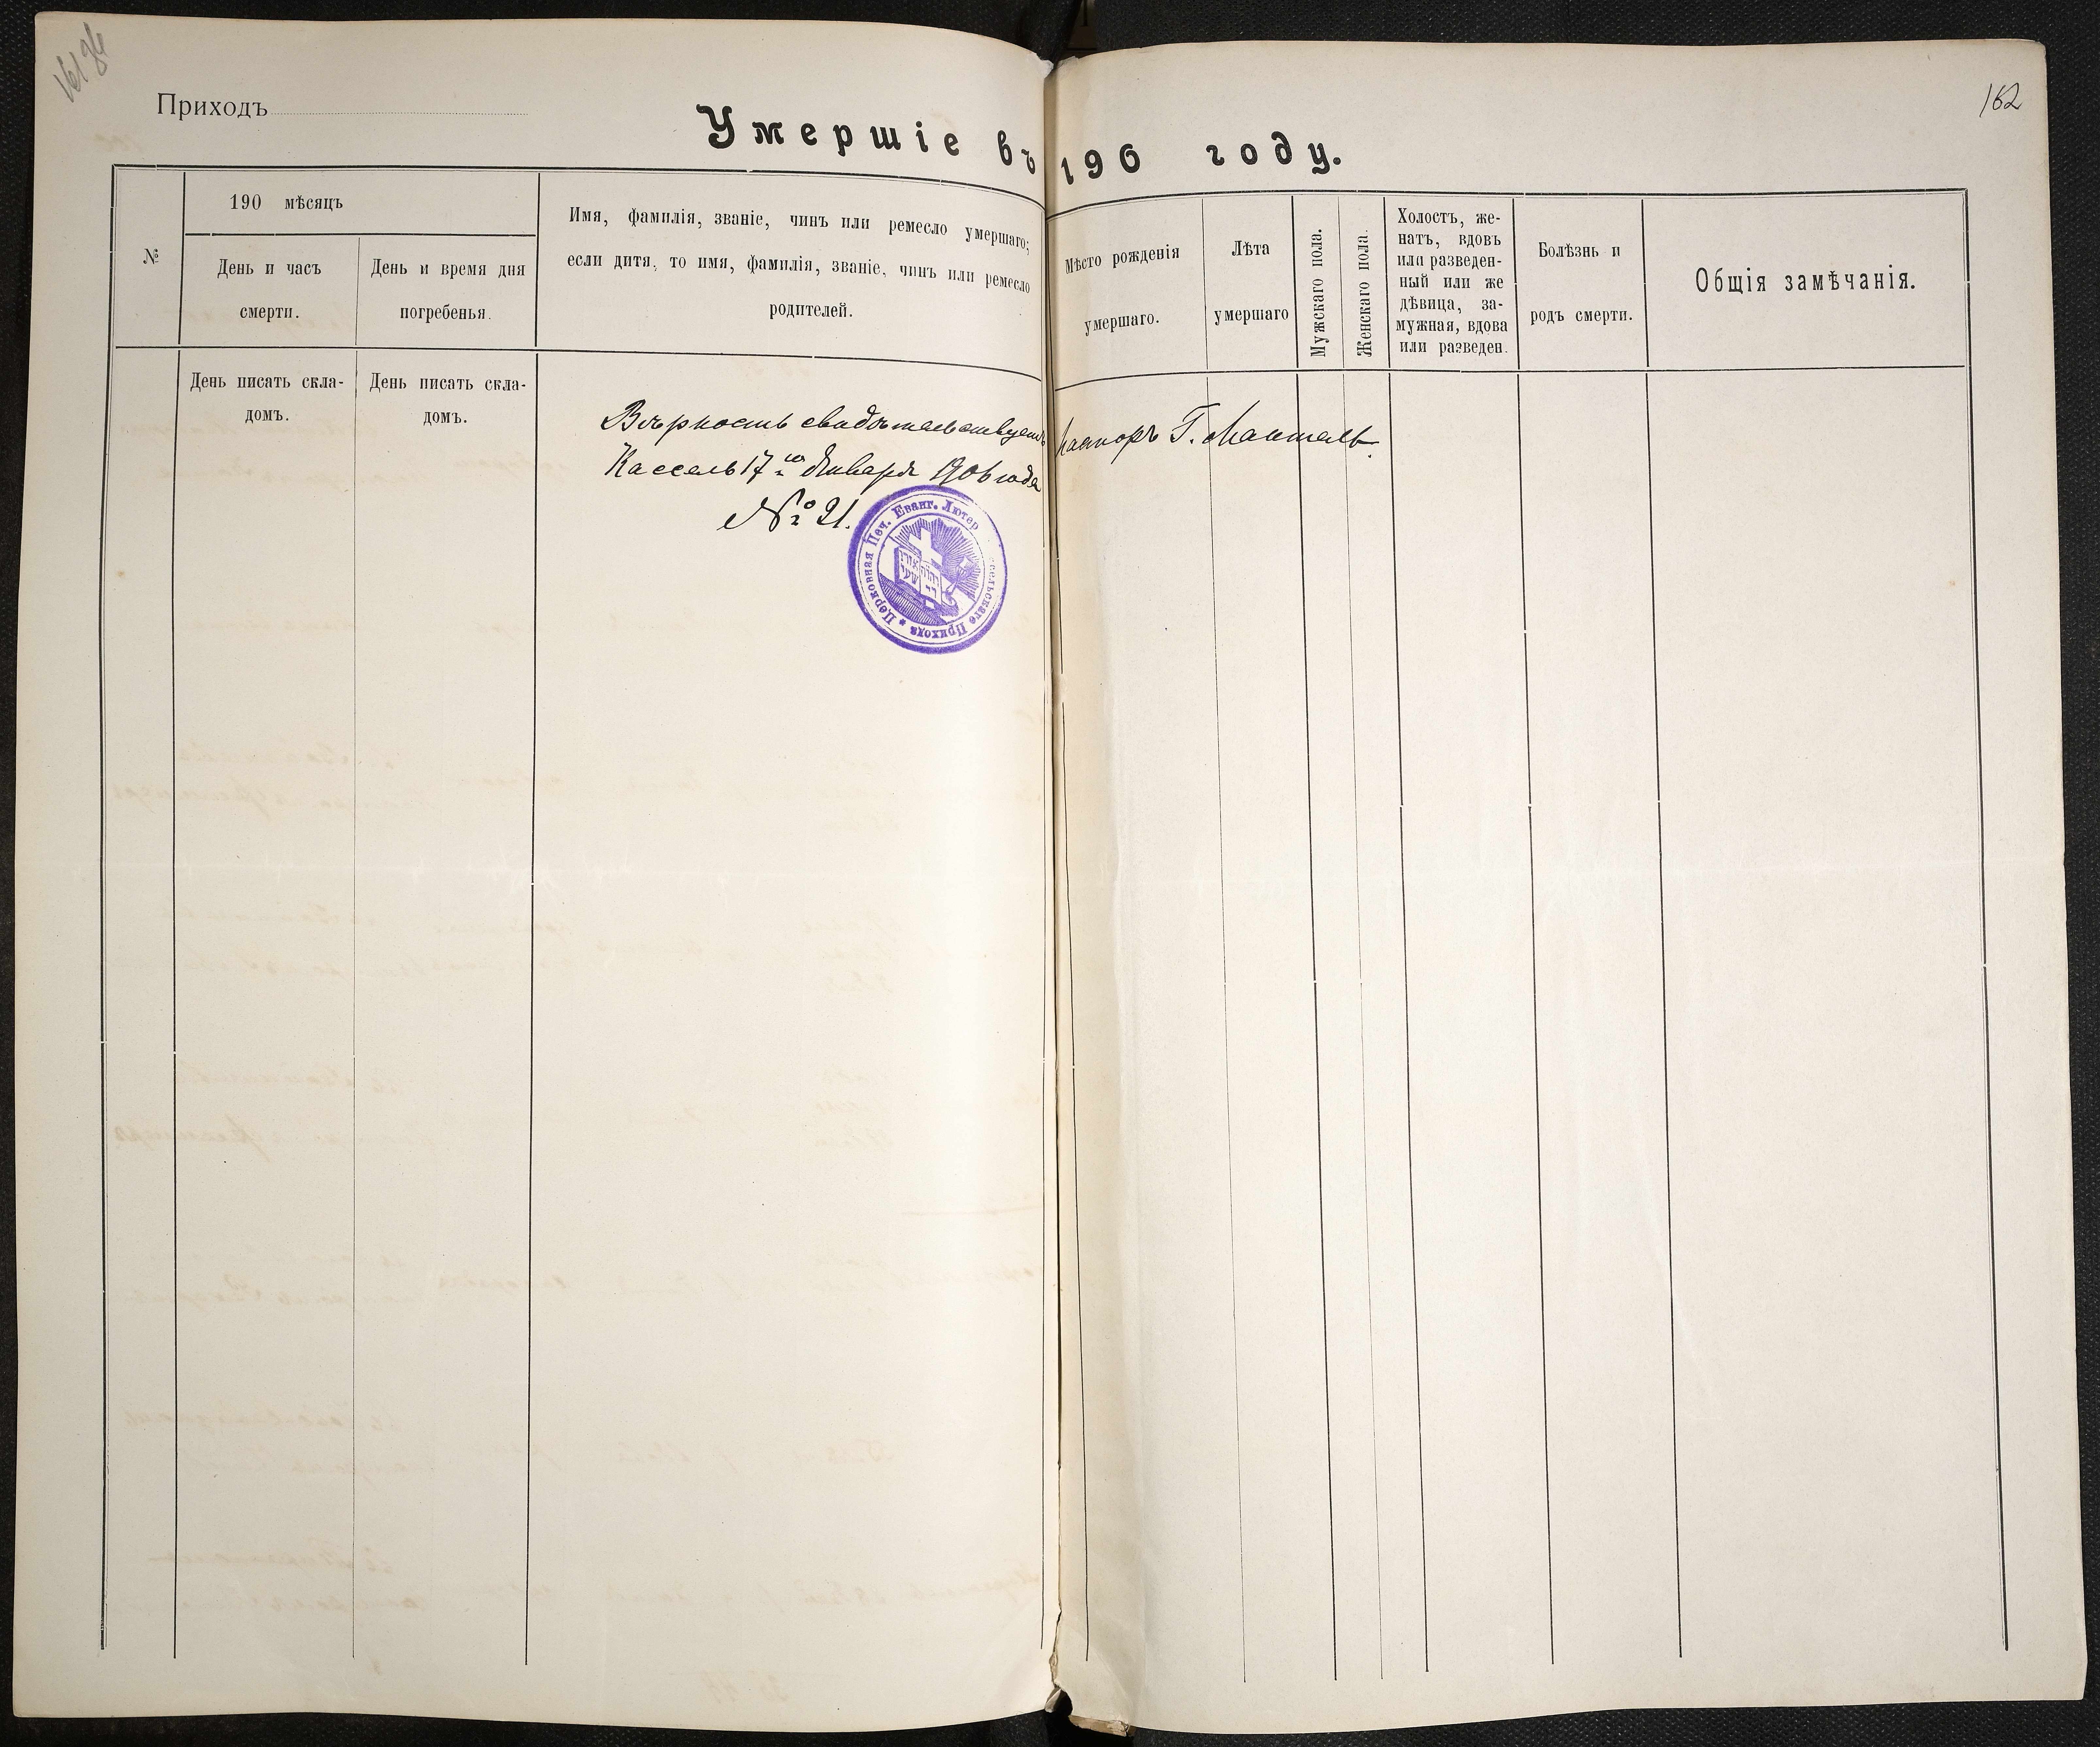 Приходъ
162
Умершіе въ 190 году.
№
190 мѣсяцъ
День и часъ
смерти.
День и время дня
погребенья.
Имя, фамилія, званіе, чинъ или ремесло умершаго;
если дитя, то имя, фамилія, званіе, чинъ или ремесло
родителей.
Мѣсто рожденія
умершаго.
Лѣта
умершаго
Мужскаго пола.
Женскаго пола.
Холостъ, же-
натъ, вдовъ
или разведен-
ный или же
дѣвица, за-
мужная, вдова
или разведен.
Болѣзнь и
родъ смерти.
Общія замѣчанія.
День писать скла-
домъ.
День писать скла-
домъ.
Вѣрность свидѣтельствуетъ пасторъ Г.
Кассель 17го Января 1906 года
№ 21.
Церковная Печ. Еванг. Лютер сельскаго Прихода *